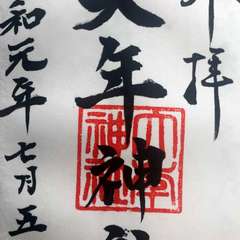 拝
大年神
和元年七月五
大年神社